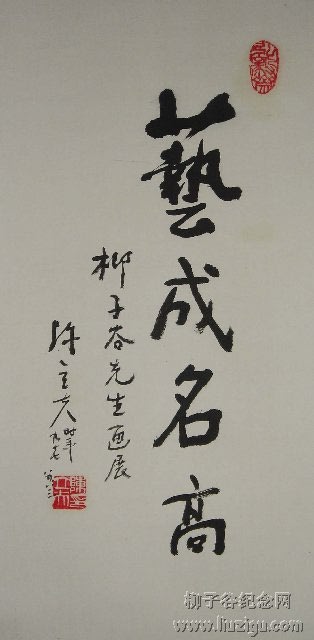 藝成名高
柳子谷先生画展
陈立夫 时年九十七
柳子谷纪念网
www.liuzigu.com